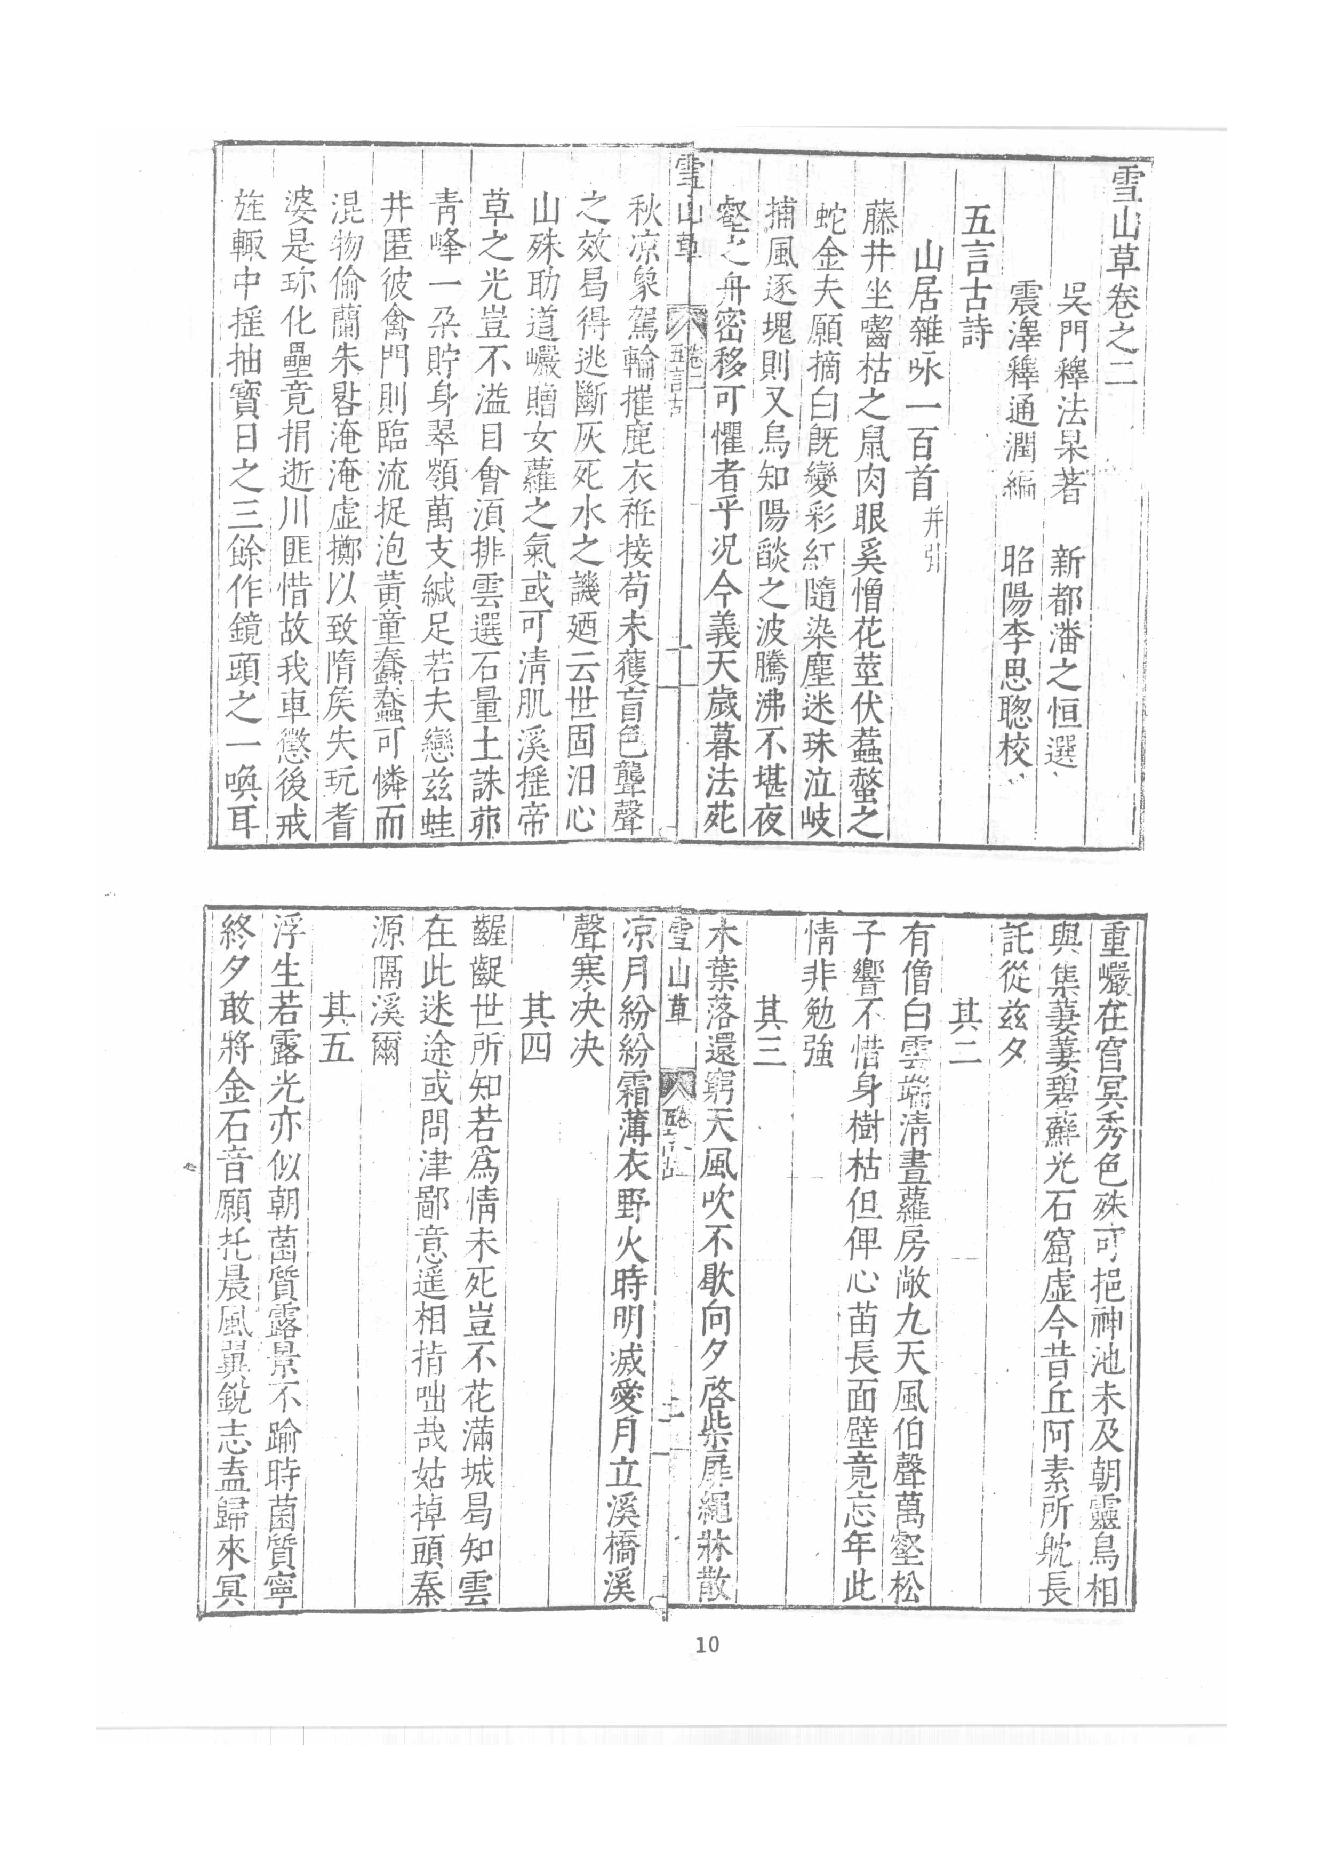 雪山草卷之二
吳門釋法杲著　新都潘之恒選
震澤釋通潤編　昭陽李思聰校
五言古詩
山居雜咏一百首并引
藤井坐嚙枯之鼠肉眼奚憎花莖伏蠚螫之
蛇金夫願摘白旣變彩紅隨染塵迷珠泣岐
捕風逐塊則又烏知陽燄之波騰沸不堪夜
壑之舟密移可懼者乎况今義天歲暮法苑
秋凉象駕輪摧鹿衣祍接苟未獲盲色聾聲
之效曷得逃斷灰死水之譏廼云世固汨心
山殊助道巘贈女蘿之氣或可淸肌溪摇帝
草之光豈不溢目會湏排雲選石量土誅茆
靑峰一朶貯身翠嶺萬支緘足若夫戀兹蛙
井匿彼禽門則臨流捉泡黃童蠢蠢可憐而
混物倫蘭朱晷淹淹虛擲以致隋矦失玩耆
婆是珎化壘竟捐逝川匪惜故我車懲後戒
旌輙中摇抽寳日之三餘作鏡頭之一喚耳
雪山草　卷二　五言古　一
重巘在窅冥秀色殊可挹神池未及朝靈鳥相
與集萋萋碧蘚光石窟虛今昔丘阿素所躭長
託從兹夕
其二
有僧白雲端淸晝蘿房敞九天風伯聲萬壑松
子響不惜身樹枯但俾心苗長面壁竟忘年此
情非勉強
其三
木葉落還窮天風吹不歇向夕啓柴扉繩牀散
凉月紛紛霜薄衣野火時明滅愛月立溪橋溪
聲寒决决
其四
齷齪世所知若爲情未死豈不花滿城曷知雲
在此迷途或問津鄙意遥相指咄哉姑掉頭秦
源隔溪爾
其五
浮生若露光亦似朝菌質露景不踰時菌質寧
終夕敢將金石音願托晨風翼銳志盍歸來冥
雪山草　二
10